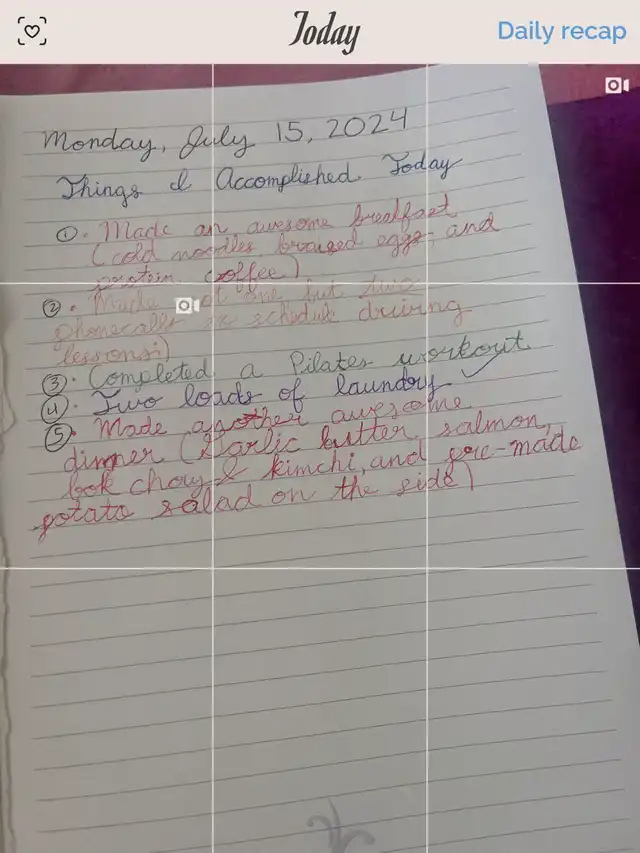 Today
Daily recap
Monday, July 15, 2024
Things I Accomplished Today
①. Made an awesome breakfast
(cold noodles braised eggs, and
protein coffee)
②. Made not one but two
phonecalls to schedule driving
lessons!)
③. Completed a Pilates workout
④. Two loads of laundry ✓
⑤. Made another awesome
dinner (Garlic butter salmon,
bok choy & kimchi, and pre-made
potato salad on the side)